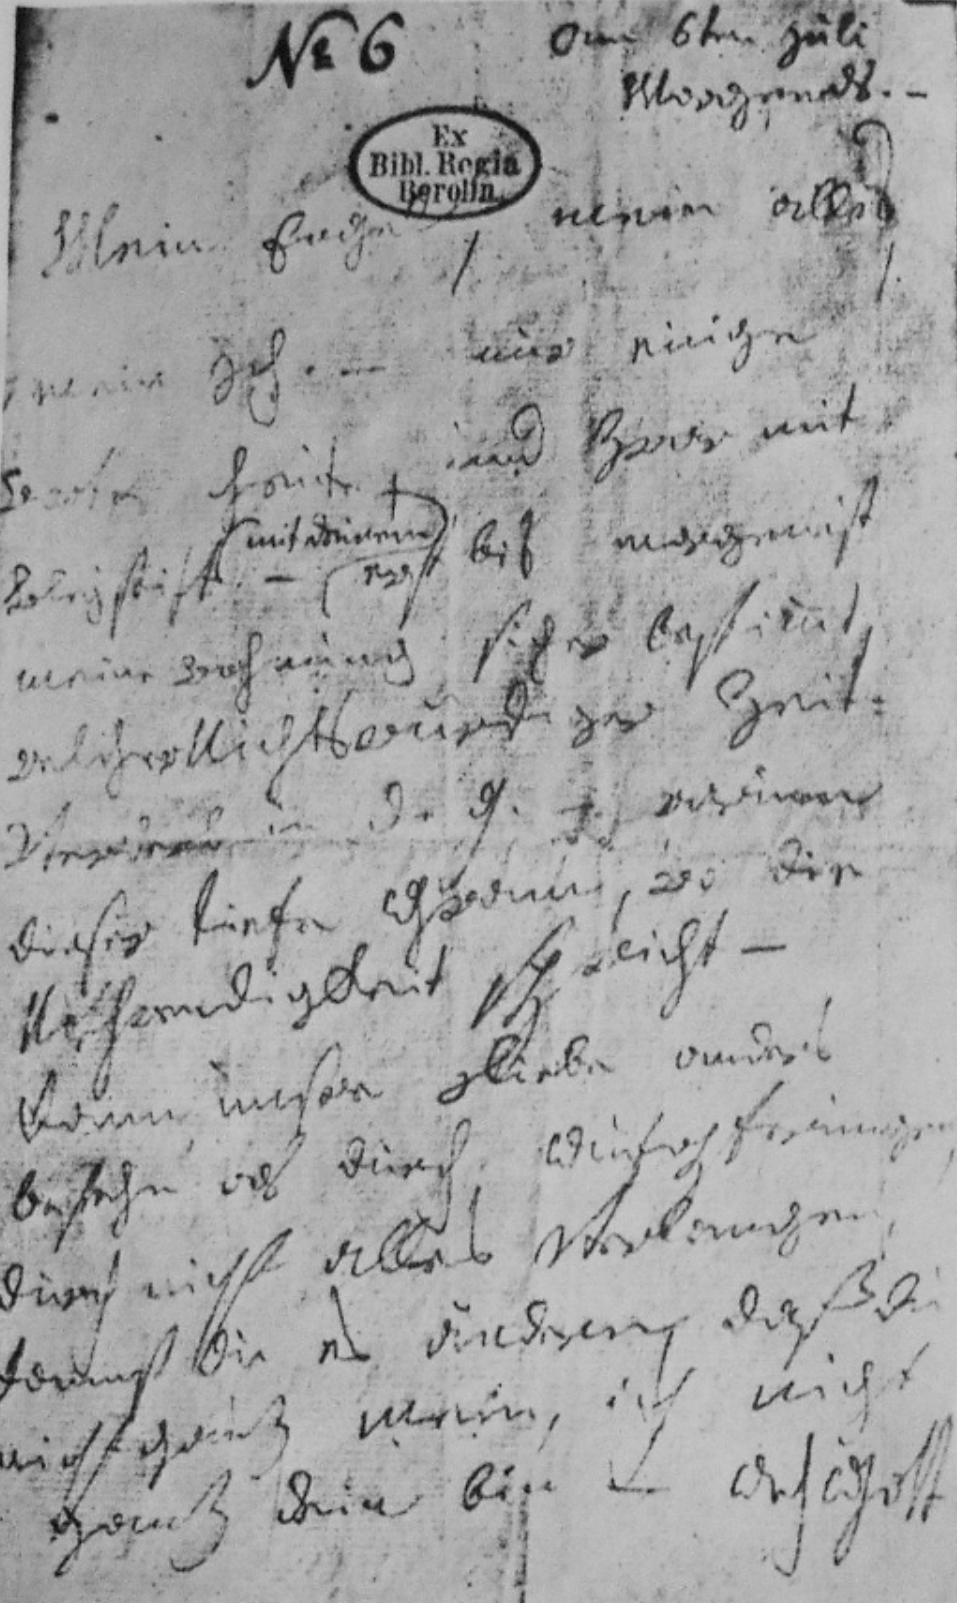 № 6 am 6ten Juli
Morgends. –
Ex
Bibl. Regia
Berolin.
Mein Engel, mein alles,
mein Ich. – nur einige
Worte heute, und zwar mit
Bleystift – (mit deinem) erst bis morgen ist
meine wohnung sicher bestimmt,
welcher Nichtswürdiger Zeit-
Verderb in d. g. – warum
dieser tiefe Gram, wo die
Nothwendigkeit spricht –
Kann unsre Liebe anders
bestehn als durch Aufopferungen,
durch nicht alles Verlangen,
kannst du es ändern, daß du
nicht ganz mein, ich nicht
ganz dein bin – Ach Gott